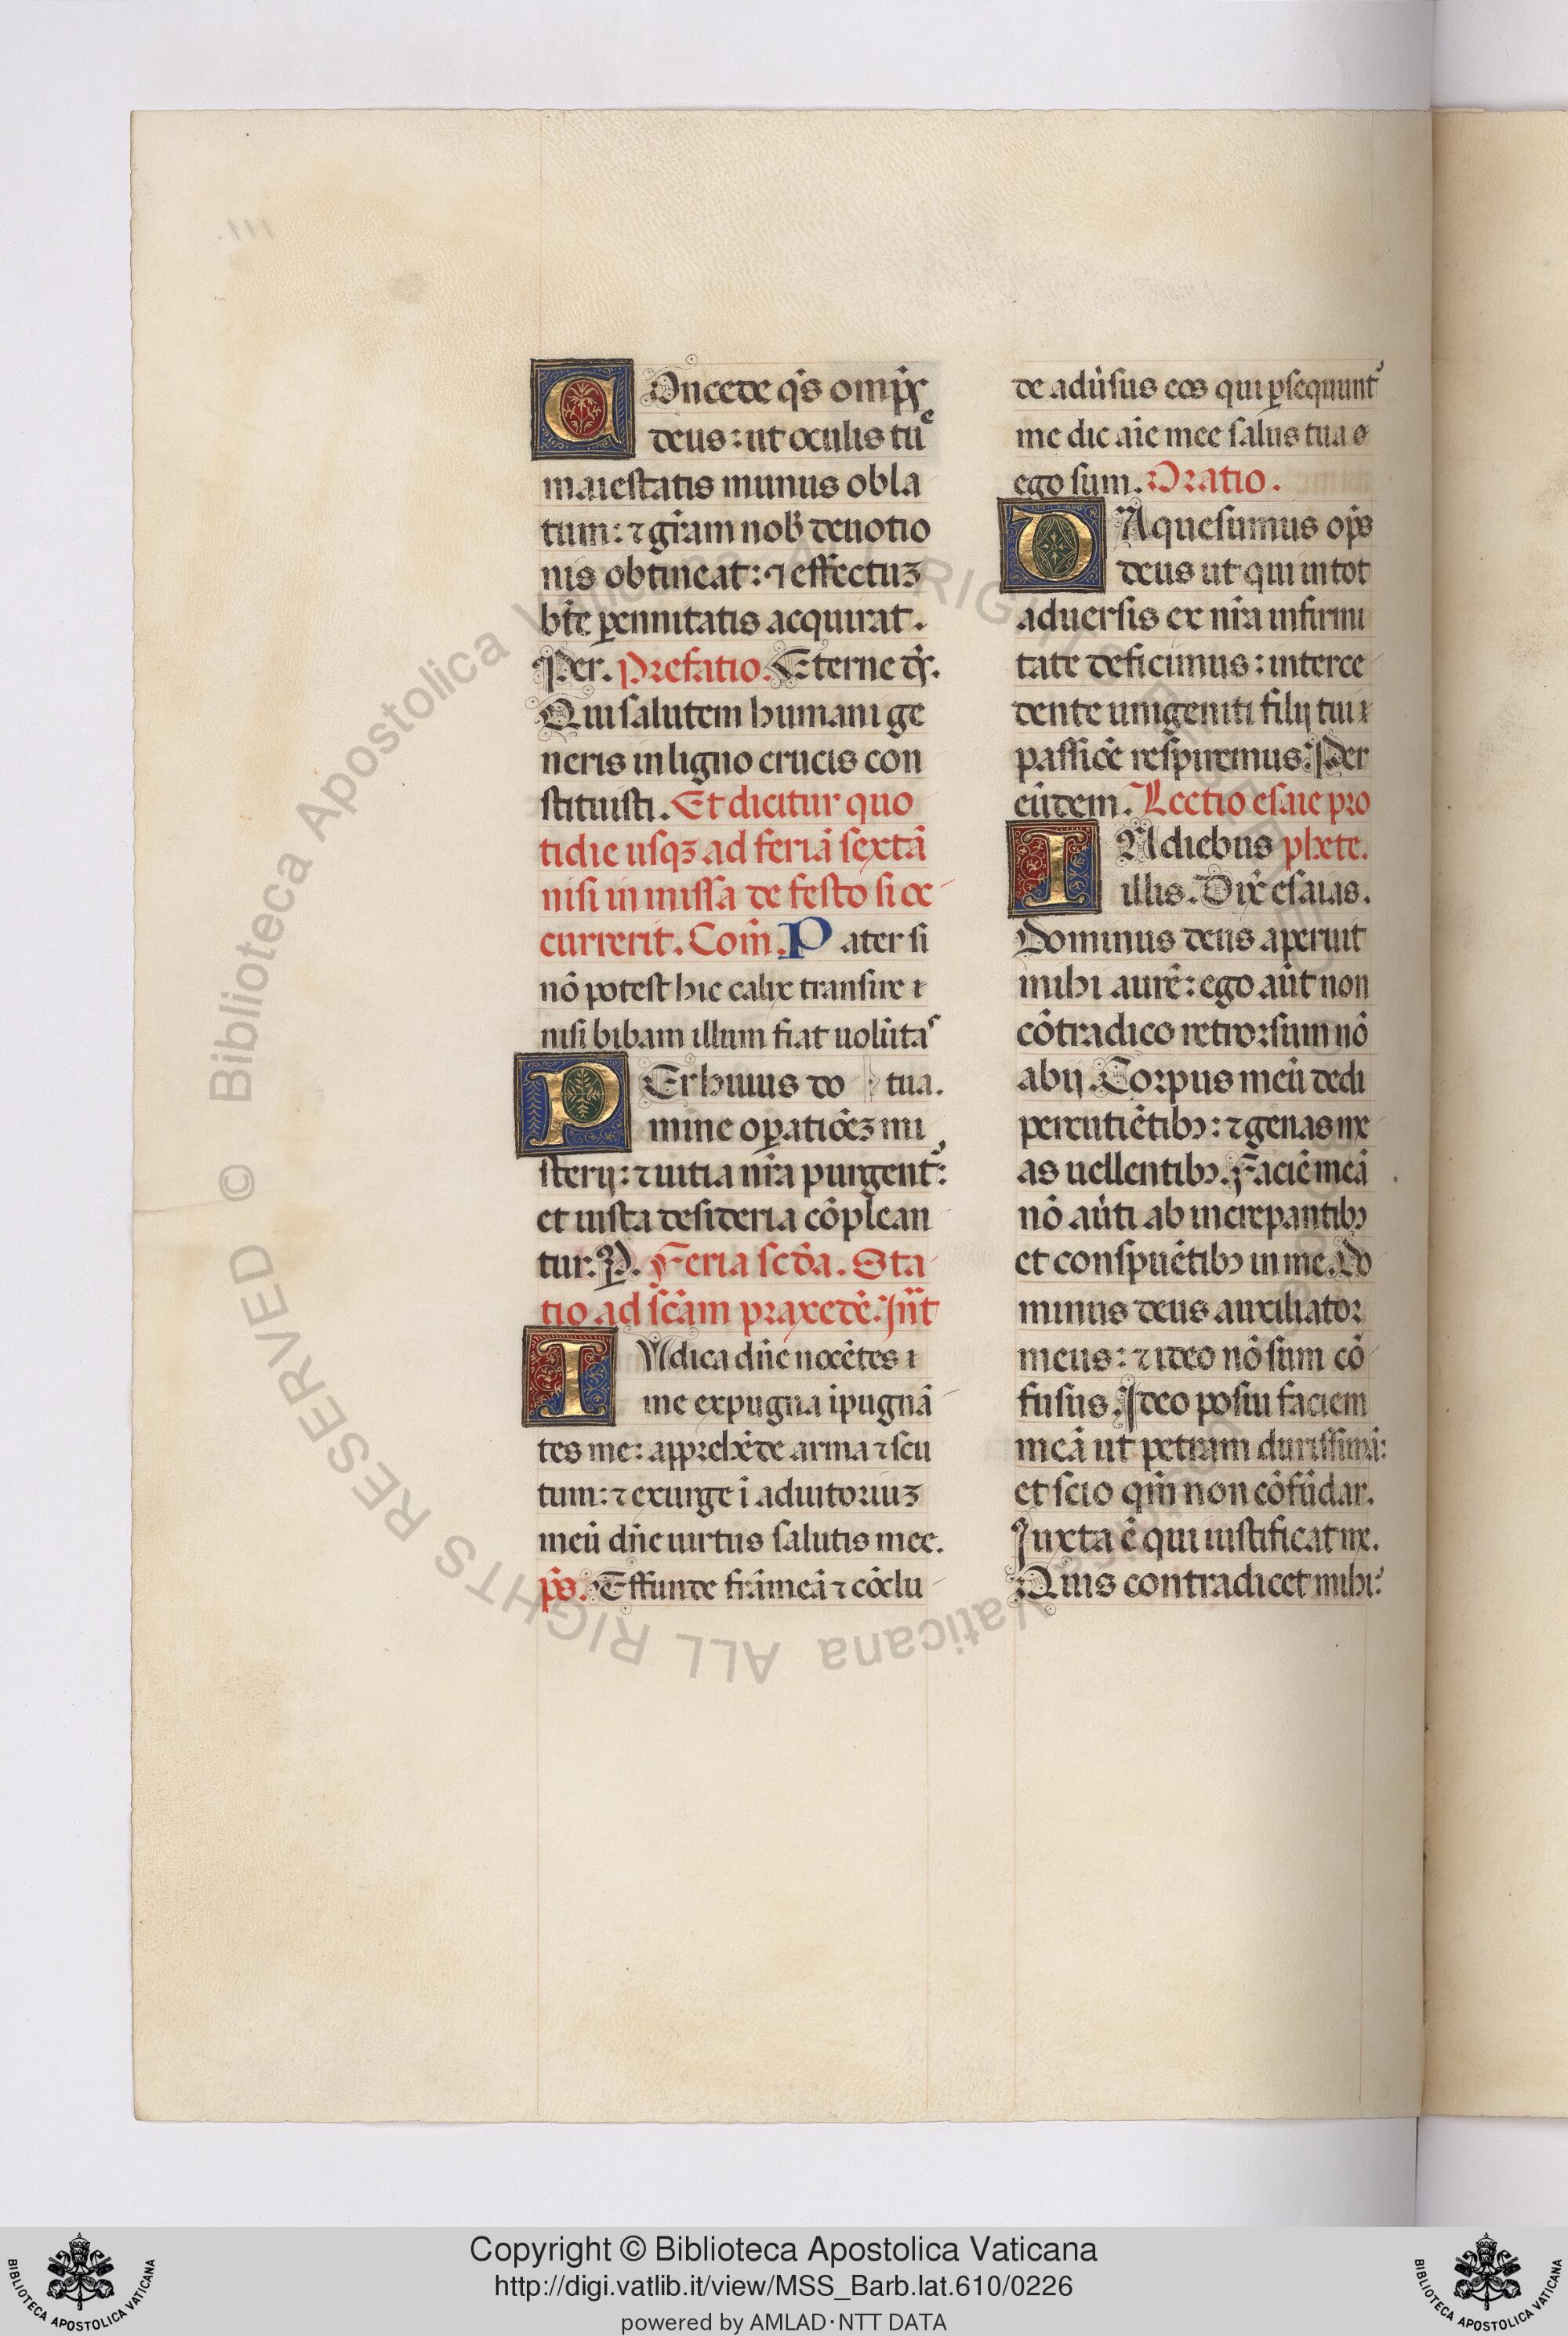 COncede q̄s omp̄s
deus: ut oculis tue
maiestatis munus obla
tum: ⁊ gr̄am nob̄ deuotio
nis obtineat: ⁊ effectuꝫ
bt̄e ꝑennitatis acquirat.
Per. Prefatio. Eterne d̄s.
Qui salutem humani ge
neris in ligno crucis con
stituisti. Et dicitur quo
tidie usqꝫ ad feriā sextā
nisi in missa de festo si oc
currerit. Com̄. Pater si
nō potest hic calix transire
nisi bibam illum fiat uolūtas
PEr huius do tua.
mine oꝑatiōeꝫ mi
sterij: ⁊ uitia nr̄a purgent᷑:
et iusta desideria cōplean
tur. P. Feria scd̄a. Sta
tio ad sc̄am praxedē. Int̄
IUdica dn̄e nocētes
me expugna īpugnā
tes me: apprehēde arma ⁊ scu
tum: ⁊ exurge ī adiutoriuꝫ
meū dn̄e uirtus salutis mee.
p̄s. Effunde frāmeā ⁊ cōclu
de adūsus eos qui ꝑsequunt᷑
me dic aīe mee salus tua
ego sum. Oratio.
DA quesumus op̄s
deus ut qui in tot
aduersis ex nr̄a infirmi
tate deficimus: interce
dente unigeniti filij tui
passiōe respiremus: Per
eūdem. Lectio esaie pro
IN diebus phete.
illis. Dix̄ esaias.
Dominus deus aperuit
mihi aurē: ego aūt non
cōtradico retrorsum nō
abij. Corpus meū dedi
percutiētibꝫ: ⁊ genas me
as uellentibꝫ. Faciē meā
nō aūti ab increpantibꝫ
et conspuētibꝫ in me. Do
minus deus auxiliator
meus: ⁊ ideo nō sum cō
fusus. Ideo posui faciem
meā ut petram durissimā:
et scio qm̄ non cōfūdar.
Iuxta ē qui iustificat me.
Quis contradicet mihi:
© Biblioteca Apostolica Vaticana ALL RIGHTS RESERVED
Copyright © Biblioteca Apostolica Vaticana
http://digi.vatlib.it/view/MSS_Barb.lat.610/0226
powered by AMLAD·NTT DATA
BIBLIOTECA APOSTOLICA VATICANA
BIBLIOTECA APOSTOLICA VATICANA